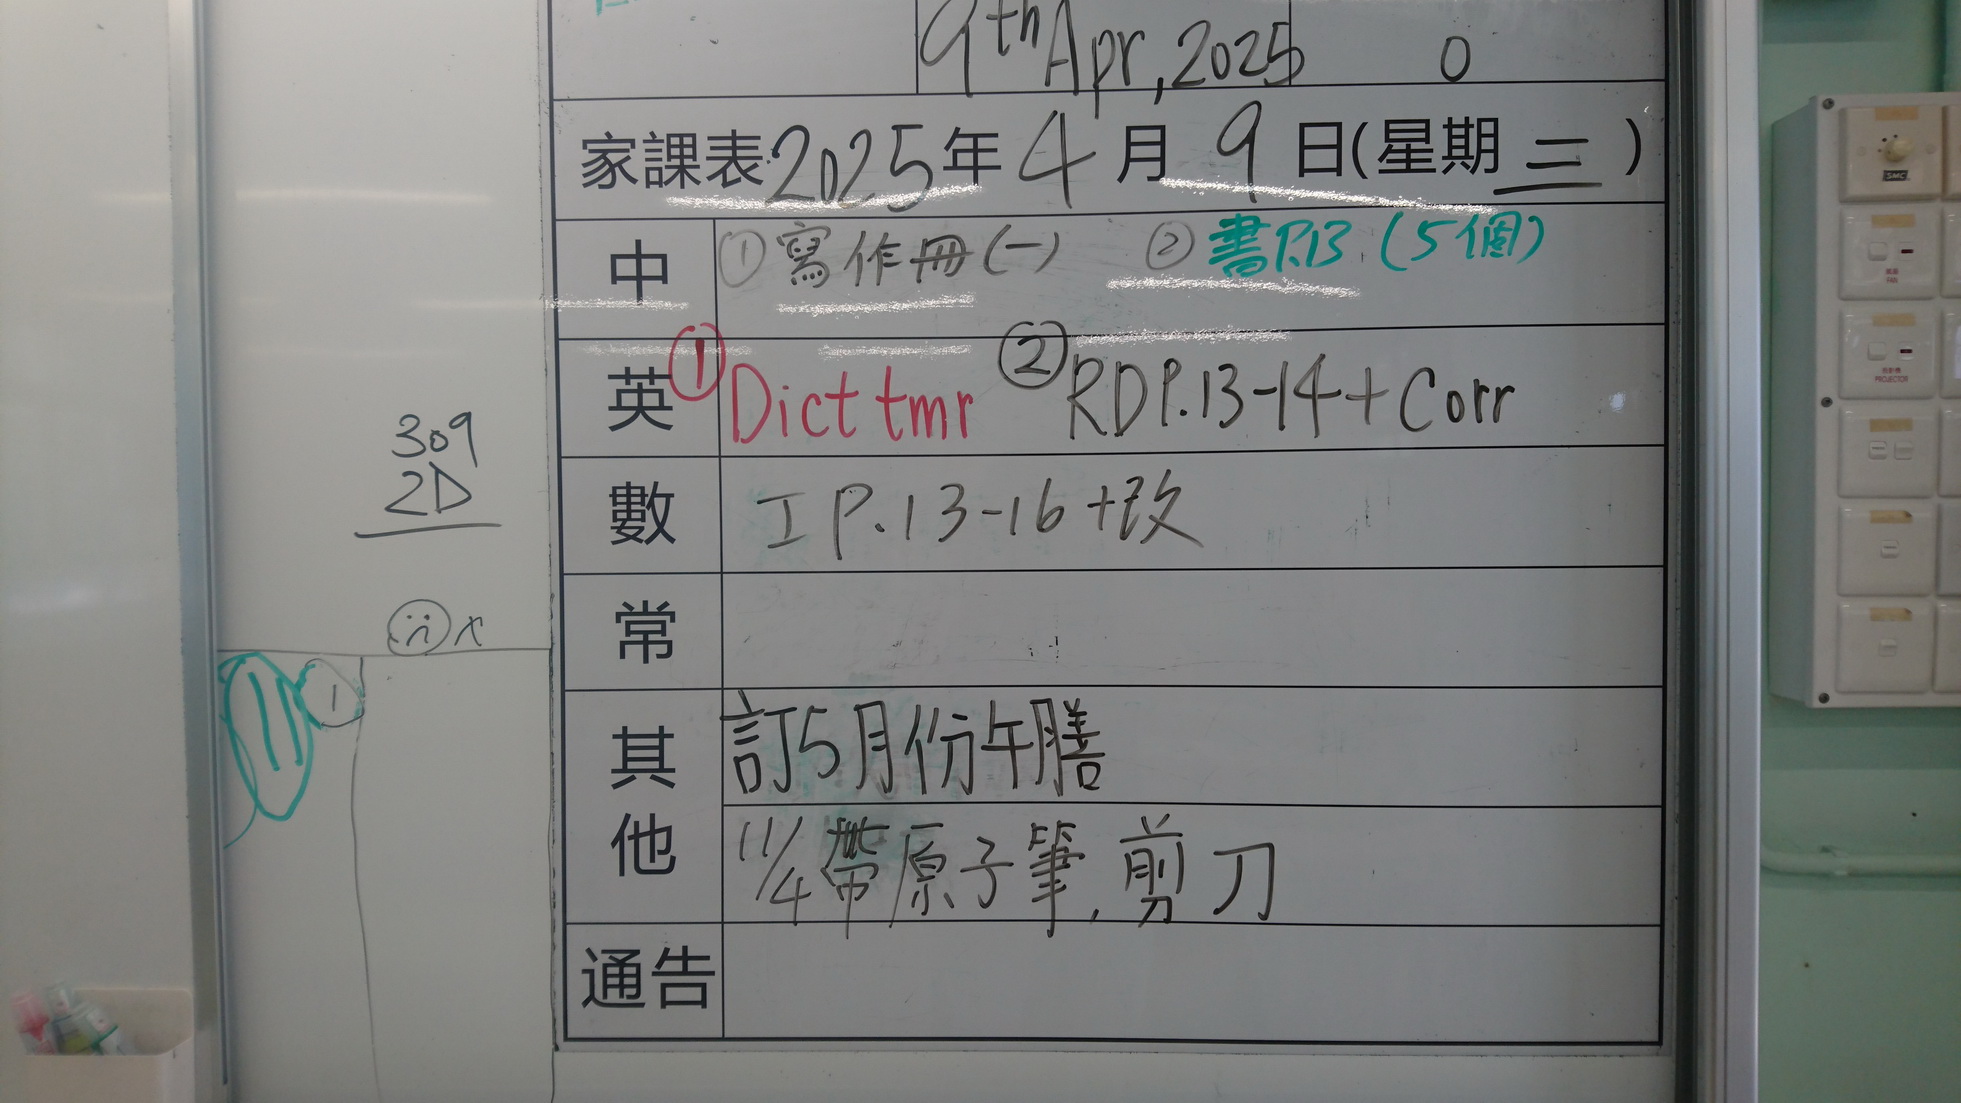 9th Apr, 2025 0
家課表 2025年 4 月 9 日(星期 三 )
中 ① 寫作冊(一) ② 書P.13 (5個)
英 ① Dict tmr ② RD P.13-14 + Corr
數 工 P.13-16 +改
常
其他 訂5月份午膳
11/4 帶原子筆, 剪刀
通告
309
2D
x
11 1
SMC
FAN
PROJECTOR